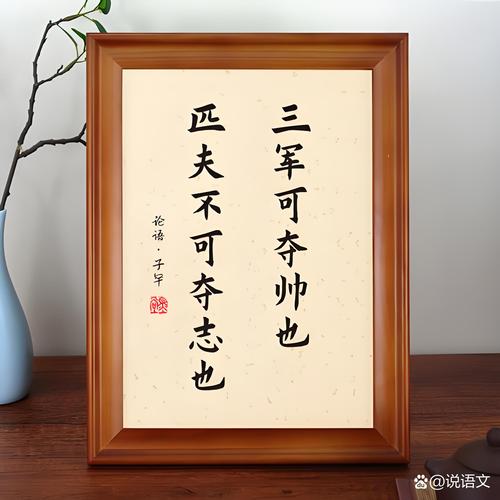 三军可夺帅也
匹夫不可夺志也
论语·子罕
@说语文